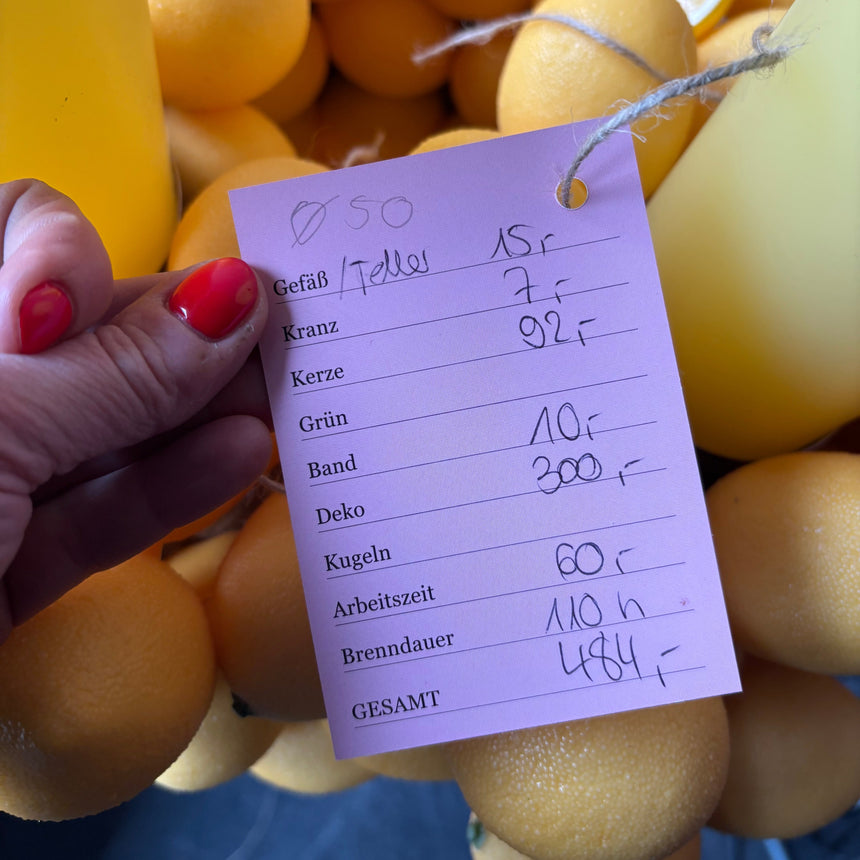 Ø 50
Gefäß /Teller 15,-
Kranz 7,-
Kerze 92,-
Grün
Band 10,-
Deko 300,-
Kugeln
Arbeitszeit 60,-
Brenndauer 110 h
GESAMT 484,-